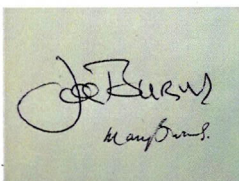 Joe Burns
Mary Burns.